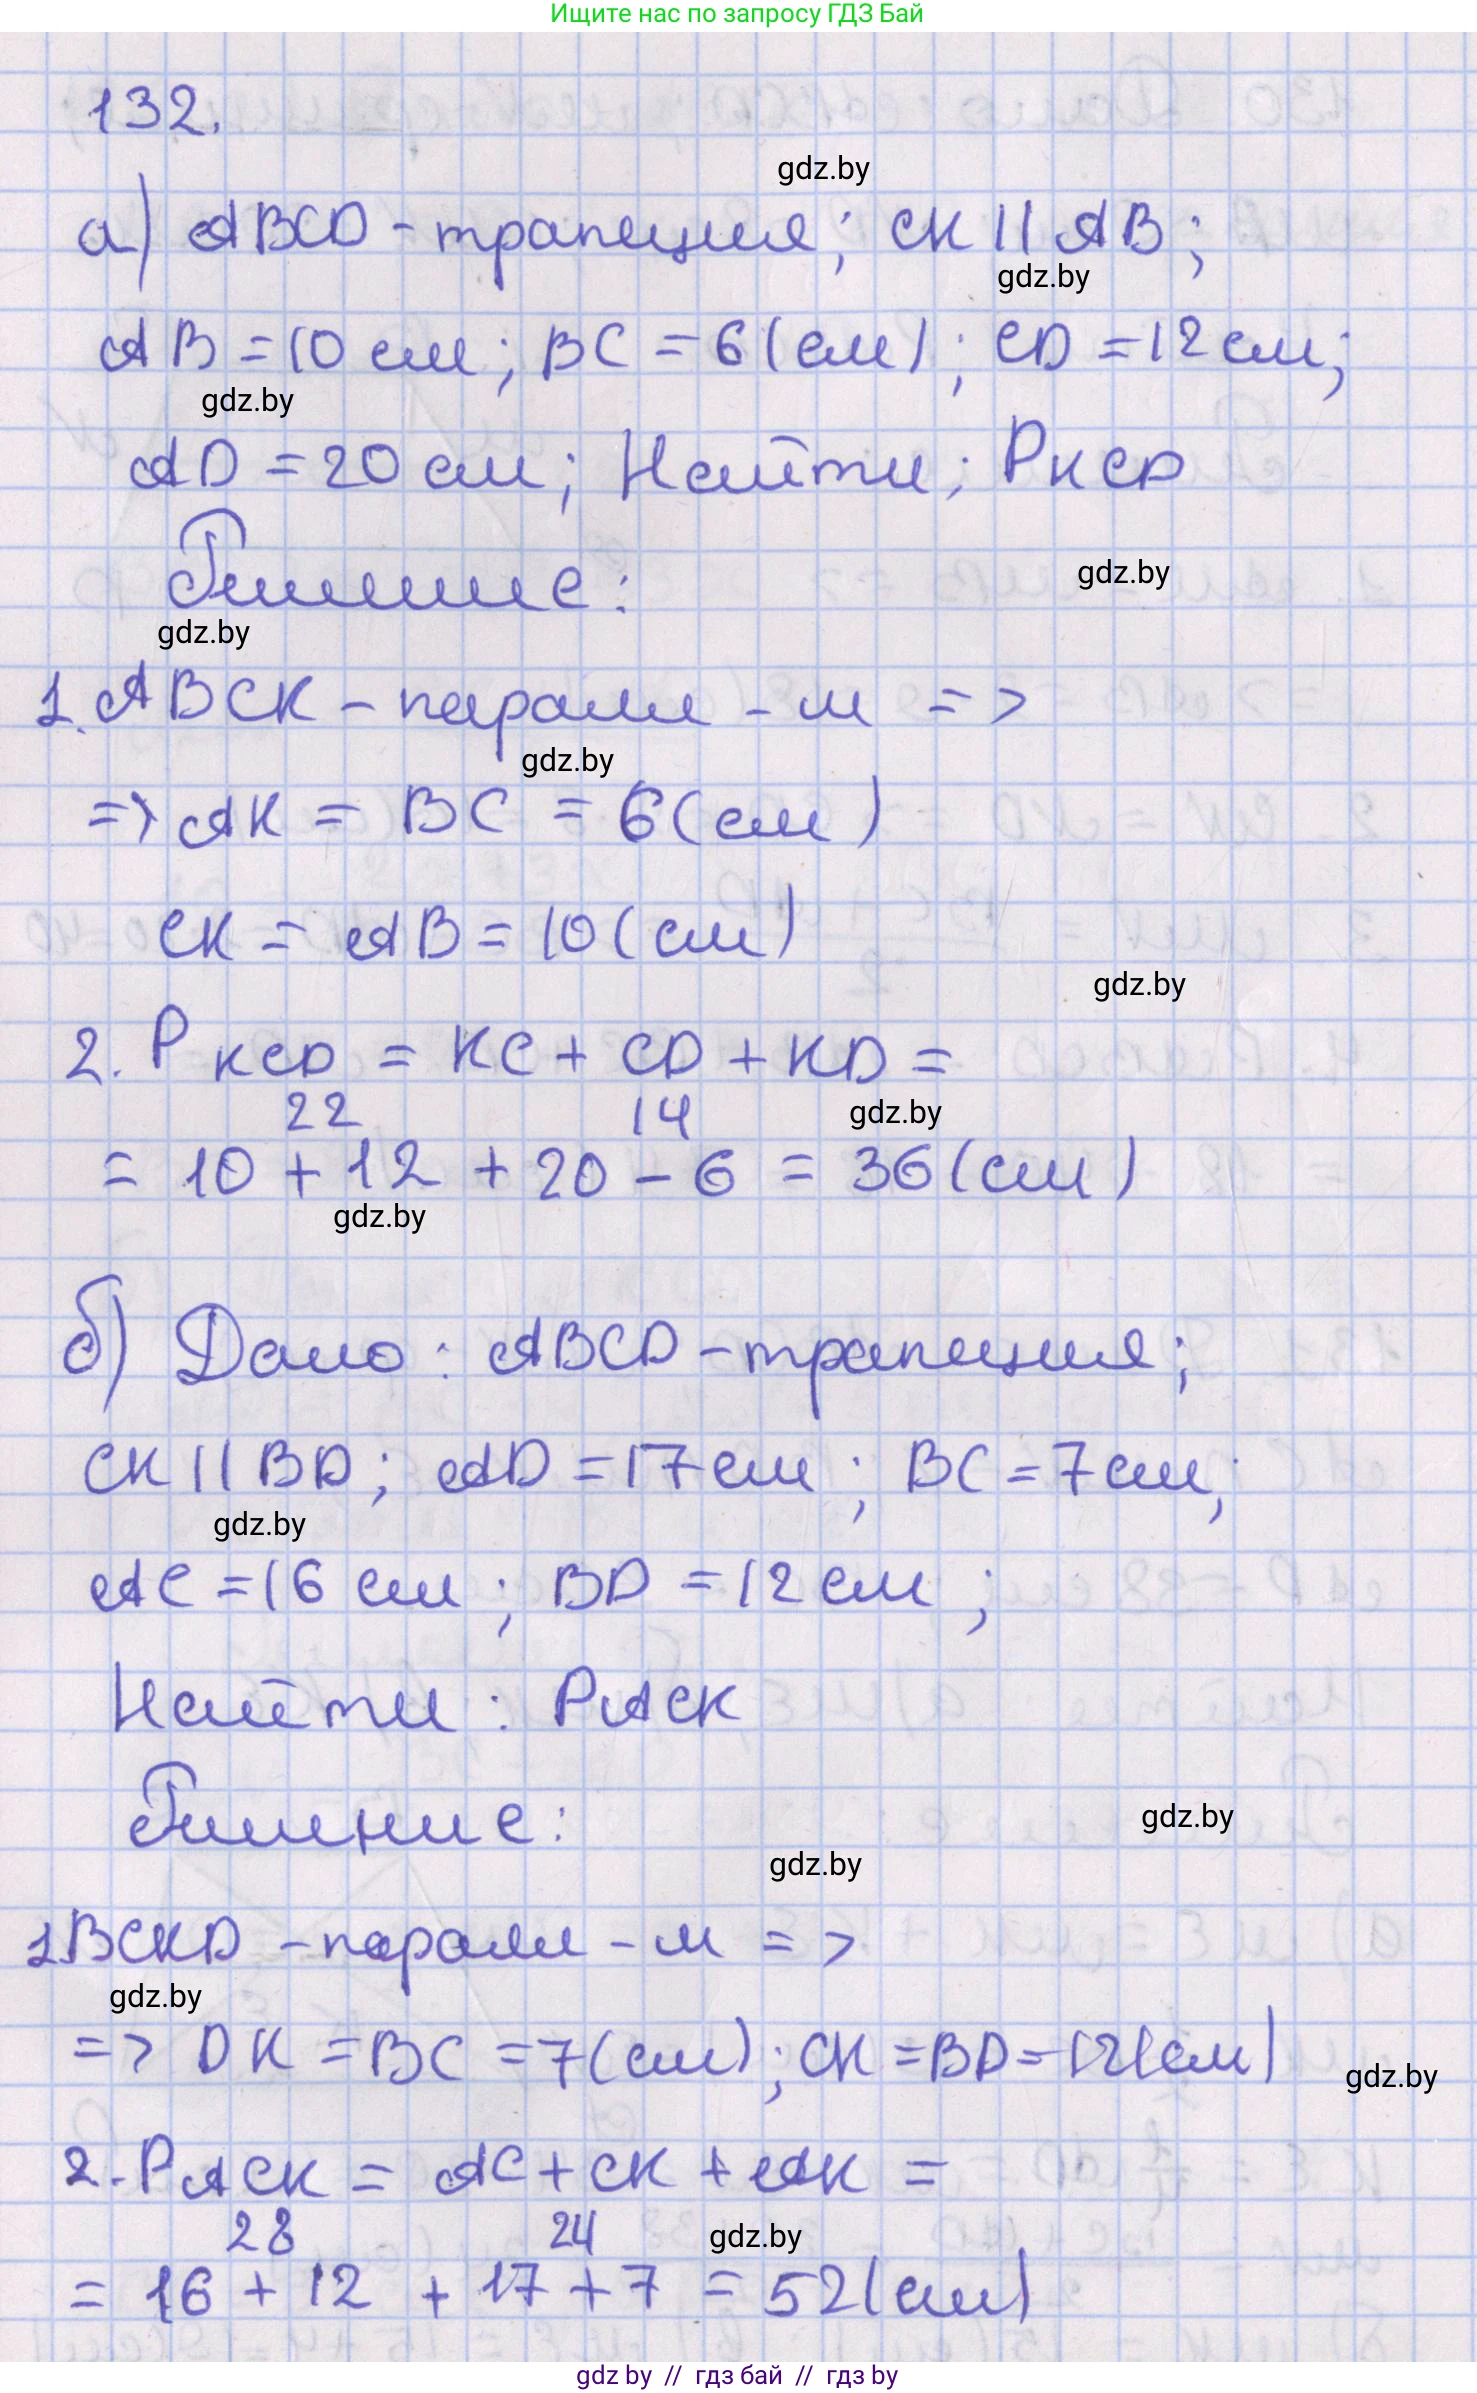 Ищите нас по запросу ГДЗ Бай
132.
gdz.by
а) ABCD - трапеция; CK || AB;
gdz.by
AB = 10 см; BC = 6 (см); CD = 12 см;
gdz.by
AD = 20 см; Найти; P KCD
Решение:
gdz.by
gdz.by
1. ABCK - паралл - м =>
gdz.by
=> AK = BC = 6 (см)
CK = AB = 10 (см)
gdz.by
2. P KCD = KC + CD + KD =
22 14
gdz.by
= 10 + 12 + 20 - 6 = 36 (см)
gdz.by
б) Дано: ABCD - трапеция;
CK || BD; AD = 17 см; BC = 7 см;
gdz.by
AC = 16 см; BD = 12 см;
Найти: P ACK
Решение:
gdz.by
gdz.by
1 BCKD - паралл - м =>
gdz.by
=> DK = BC = 7 (см); CK = BD = 12 (см)
gdz.by
2. P ACK = AC + CK + AK =
28 24
gdz.by
= 16 + 12 + 17 + 7 = 52 (см)
gdz by // гдз бай // гдз by